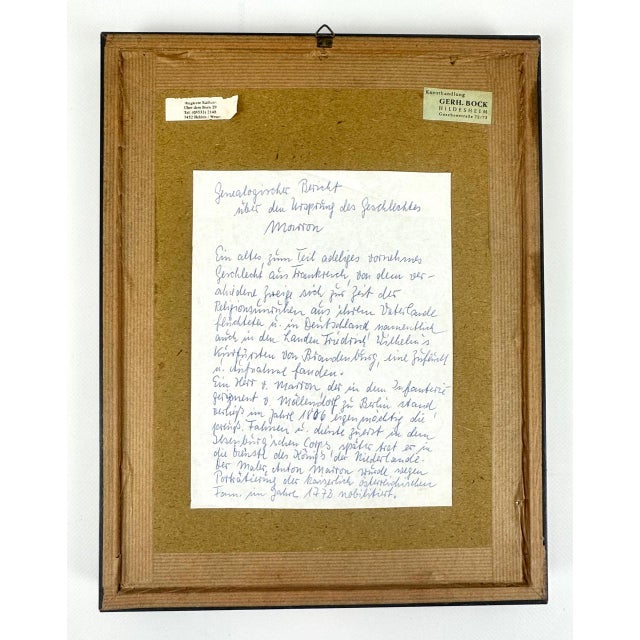 Über dem Born 29
Kunsthandlung
GERH. BOCK
HILDESHEIM
Genealogischer Bericht
über den Ursprung des Geschlechtes
Marron
Ein altes, zum Teil adeliges vornehmes
Geschlecht aus Frankreich, von dem ver-
schiedene Zweige sich zur Zeit der
Religionsunruhen aus ihrem Vaterlande
flüchteten u. in Deutschland namentlich
auch in den Landen Friedrich Wilhelms
Kurfürsten von Brandenburg, eine Zuflucht
u. Aufnahme fanden.
Ein Herr v. Marron der in dem Infanterie
regiment v. Möllendorf zu Berlin stand
verließ im Jahre 1806 eigenmächtig die
preuß. Fahnen u. diente zuerst in dem
Isenburg'schen Corps, später trat er in
die Dienste des Königs der Niederlande.
Der Maler Anton Marron wurde wegen
Porträtierung der kaiserlich österreichischen
Fam. im Jahre 1772 nobilitiert.